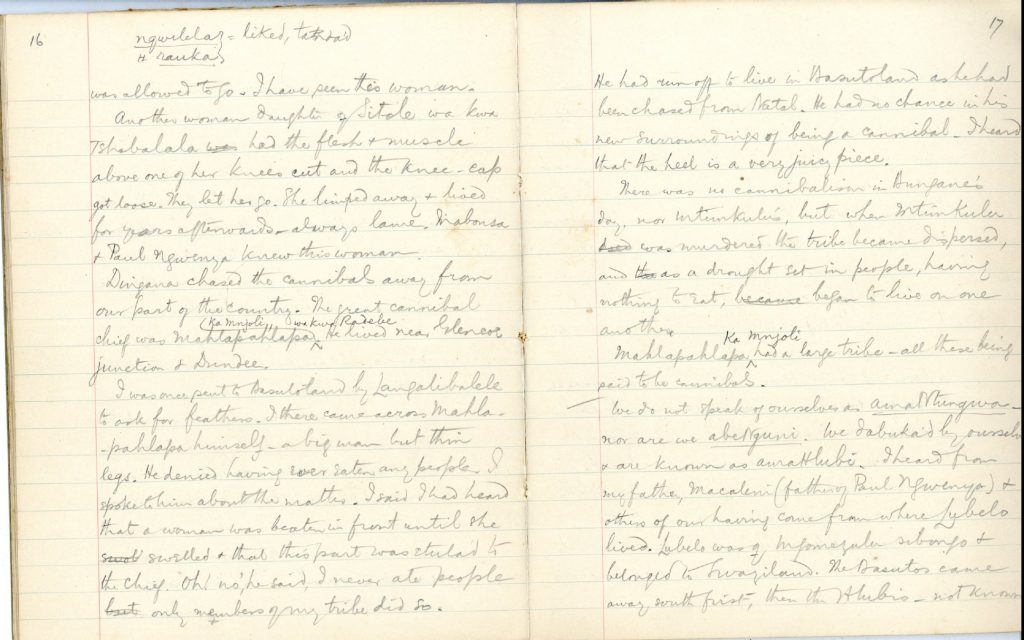 16
ngwilela = liked,
& rauka
was allowed to go. I have seen this woman.
Another woman daughter of Sitole wa kwa
Tshabalala was had the flesh & muscle
above one of her knees cut and the knee-cap
got loose. They let her go. She limped away & lived
for years afterwards - always lame. Mabonsa
& Paul Ngwenya knew this woman.
Dingana chased the cannibals away from
our part of the country. The great cannibal
(Ka mnjoli, wa kwa Radebe
chief was Mahlapahlapa. He lived near Glencoe
junction & Dundee.
I was once sent to Basutoland by Langalibalele
to ask for feathers. I there came across Mahla-
-pahlapa himself - a big man but thin
legs. He denied having ever eaten any people. I
spoke to him about the matter. I said I had heard
that a woman was beaten in front until she
swol swelled & that this part was etula'd to
the chief. Oh! no, he said, I never ate people
but only members of my tribe did so.
17
He had run off to live in Basutoland as he had
been chased from Natal. He had no chance in his
new surroundings of being a cannibal. I heard
that the heel is a very juicy piece.
There was no cannibalism in Bungane's
day, nor Mtimkulu's, but when Mtimkulu
died was murdered the tribe became dispersed,
and the as a drought set in people, having
nothing to eat, became began to live on one
another.
Ka mnjoli
Mahlapahlapa had a large tribe - all these being
said to be cannibals.
We do not speak of ourselves as amaNtungwa -
nor are we abeNguni. We dabuka'd by ourselv
& are known as amaHlubi. I heard from
my father, Macaleni (father of Paul Ngwenya) &
others of our having come from where Lubelo
lived. Lubelo was of Mgomezulu sibongo &
belonged to Swaziland. The Basutos came
away south first, then the Hlubis - not known